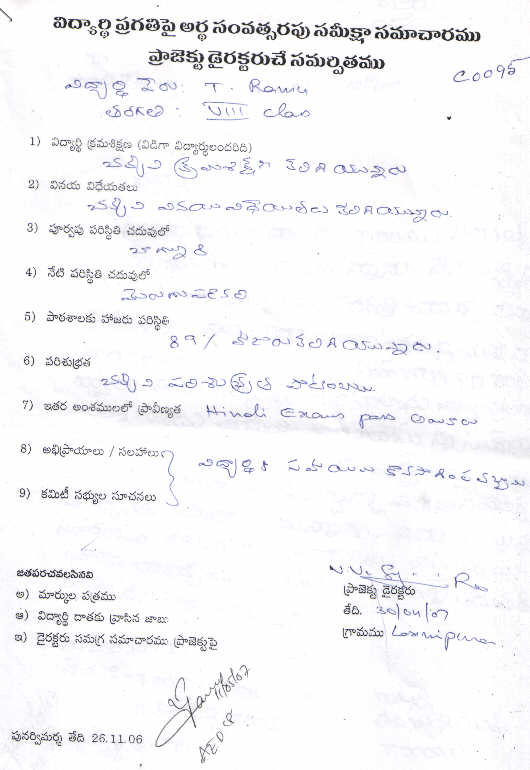 విద్యార్థి ప్రగతిపై అర్థ సంవత్సరపు సమీక్షా సమాచారము
ప్రాజెక్టు డైరక్టరుచే సమర్పితము
C0095
విద్యార్థి పేరు: T. Ramu
తరగతి: VIII Class
1) విద్యార్థి క్రమశిక్షణ (విడిగా విద్యార్థులందరిది)
చక్కని క్రమశిక్షణ కలిగియున్నారు
2) వినయ విధేయతలు
చక్కని వినయవిధేయతలు కలిగియున్నారు.
3) పూర్వపు పరిస్థితి చదువులో
బాగున్నది
4) నేటి పరిస్థితి చదువులో
మెరుగుపడినది
5) పాఠశాలకు హాజరు పరిస్థితి
89% హాజరుకలిగియున్నారు.
6) పరిశుభ్రత
చక్కని పరిశుభ్రత
7) ఇతర అంశములలో ప్రావీణ్యత Hindi Exam pass
8) అభిప్రాయాలు / సలహాలు
విద్యార్థికి సహాయము కొనసాగించవచ్చును
9) కమిటీ సభ్యుల సూచనలు
జతపరచవలసినవి
ప్రాజెక్టు డైరక్టరు
అ) మార్కుల పత్రము
తేది. 30/04/07
ఆ) విద్యార్థి దాతకు వ్రాసిన జాబు
గ్రామము
ఇ) డైరక్టరు సమగ్ర సమాచారము ప్రాజెక్టుపై
11/05/07
పునర్విమర్శ తేది 26.11.06